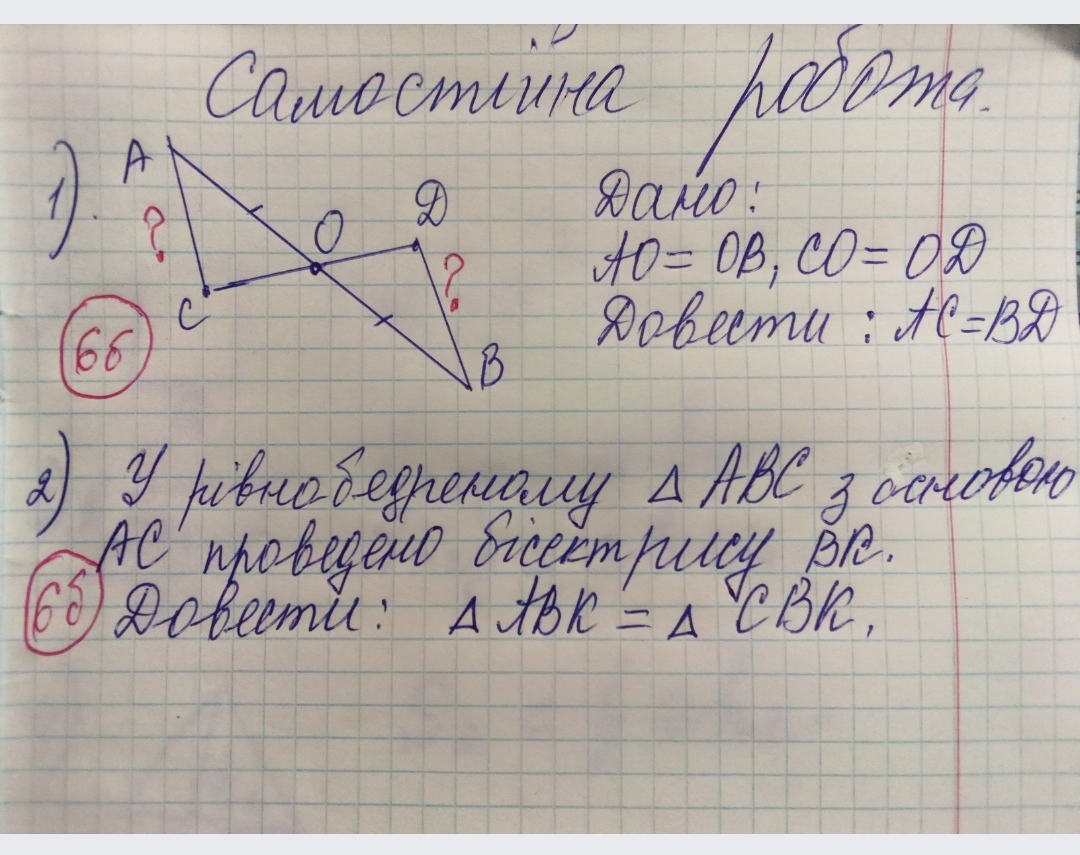 Самостійна робота.
1).
A
O
D
?
?
C
B
6б
Дано:
AO = OB, CO = OD
Довести : AC = BD
2) У рівнобедреному △ ABC з основою
AC проведено бісектрису BK.
6б
Довести: △ ABK = △ CBK.